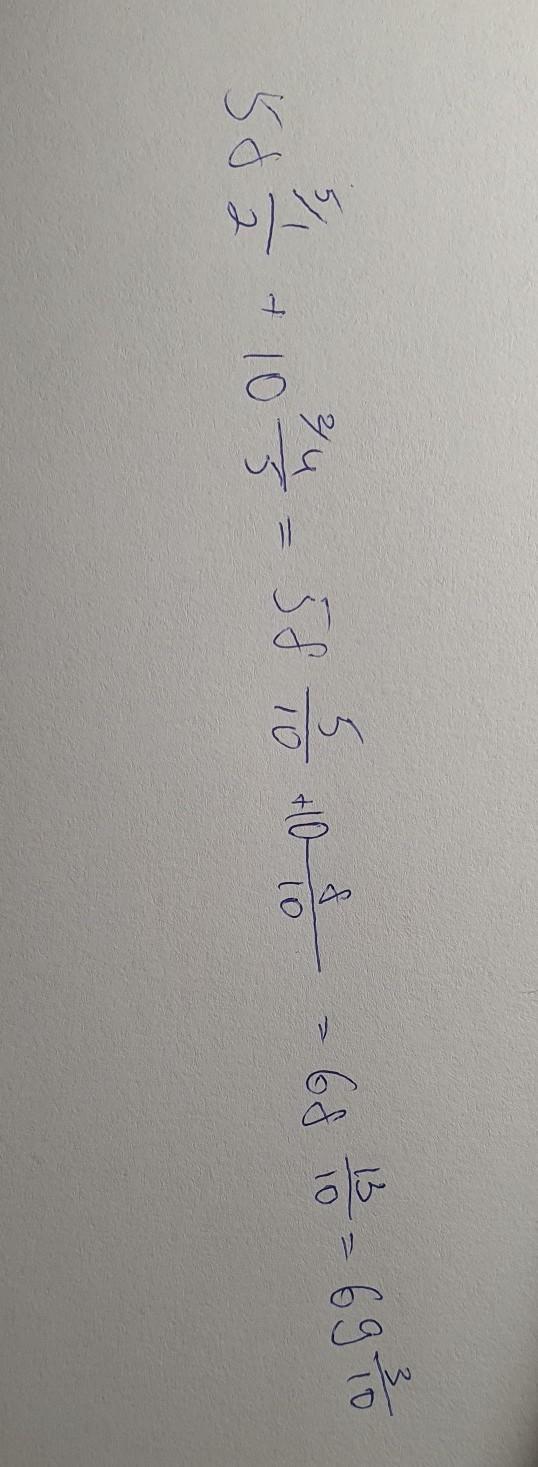 58 ⁵⁄1/2 + 10 ²⁄4/5 = 58 5/10 + 10 8/10 = 68 13/10 = 69 3/10